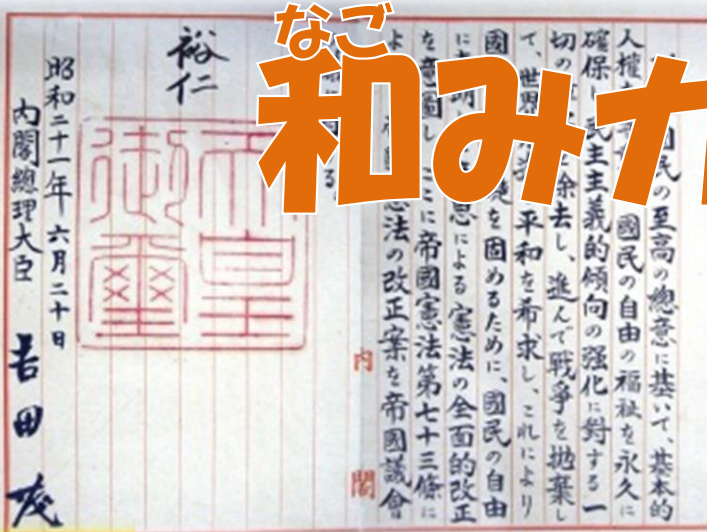 なご
和み
國民の至高の總意に基いて、基本的
人權 國民の自由の福祉を永久に
確保し 民主主義的傾向の强化に對する一
切の 除去し、進んで戰爭を抛棄し
て、世界 平和を希求し、これにより
國 礎を固めるために、國民の自由
に 明 意思による憲法の全面的改正
を意圖し ここに帝國憲法第七十三條に
よ 憲法の改正案を帝國議會
る
内閣
天皇
御璽
裕仁
昭和二十一年六月二十日
内閣總理大臣 吉田茂